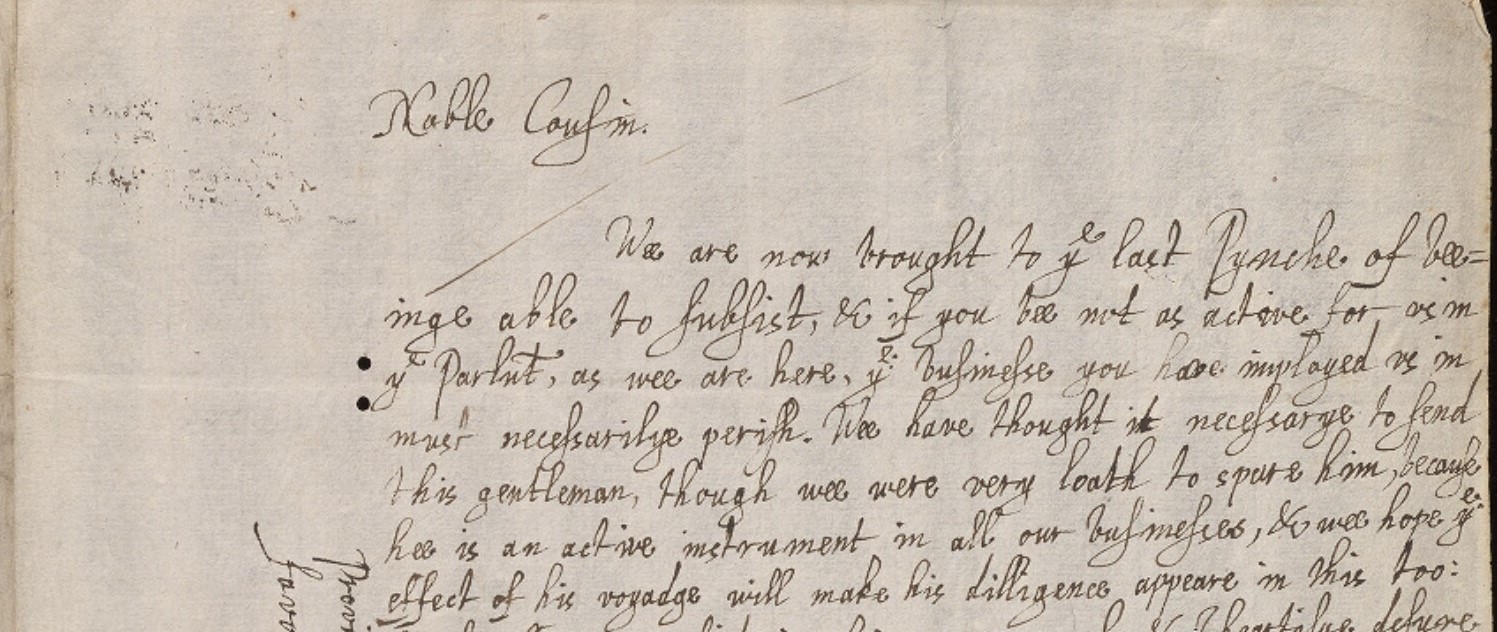 Noble Cousin.
Wee are now brought to yᵉ last Pynche of bee=
inge able to subsist, & if you bee not as active for vs in
yᵉ Parlmᵗ, as wee are here, yᵉ businesse you have imployed vs in
must necessarilye perish. Wee have thought it necessarye to send
this gentleman, though wee were very loath to spare him, because
hee is an active instrument in all our businesses, & wee hope yᵉ
effect of his voyadge will make his dilligence appeare in this too:
desyre